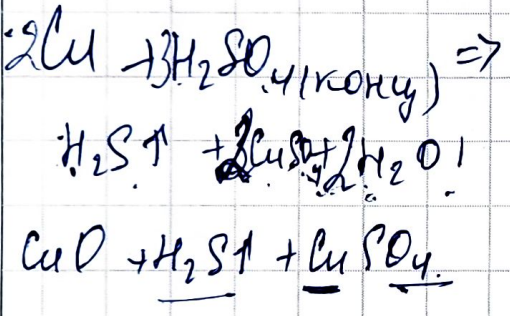 2Cu + 3H₂SO₄(конц) ⇒
H₂S↑ + 2CuSO₄ + 2H₂O!
CuO + H₂S↑ + CuSO₄.